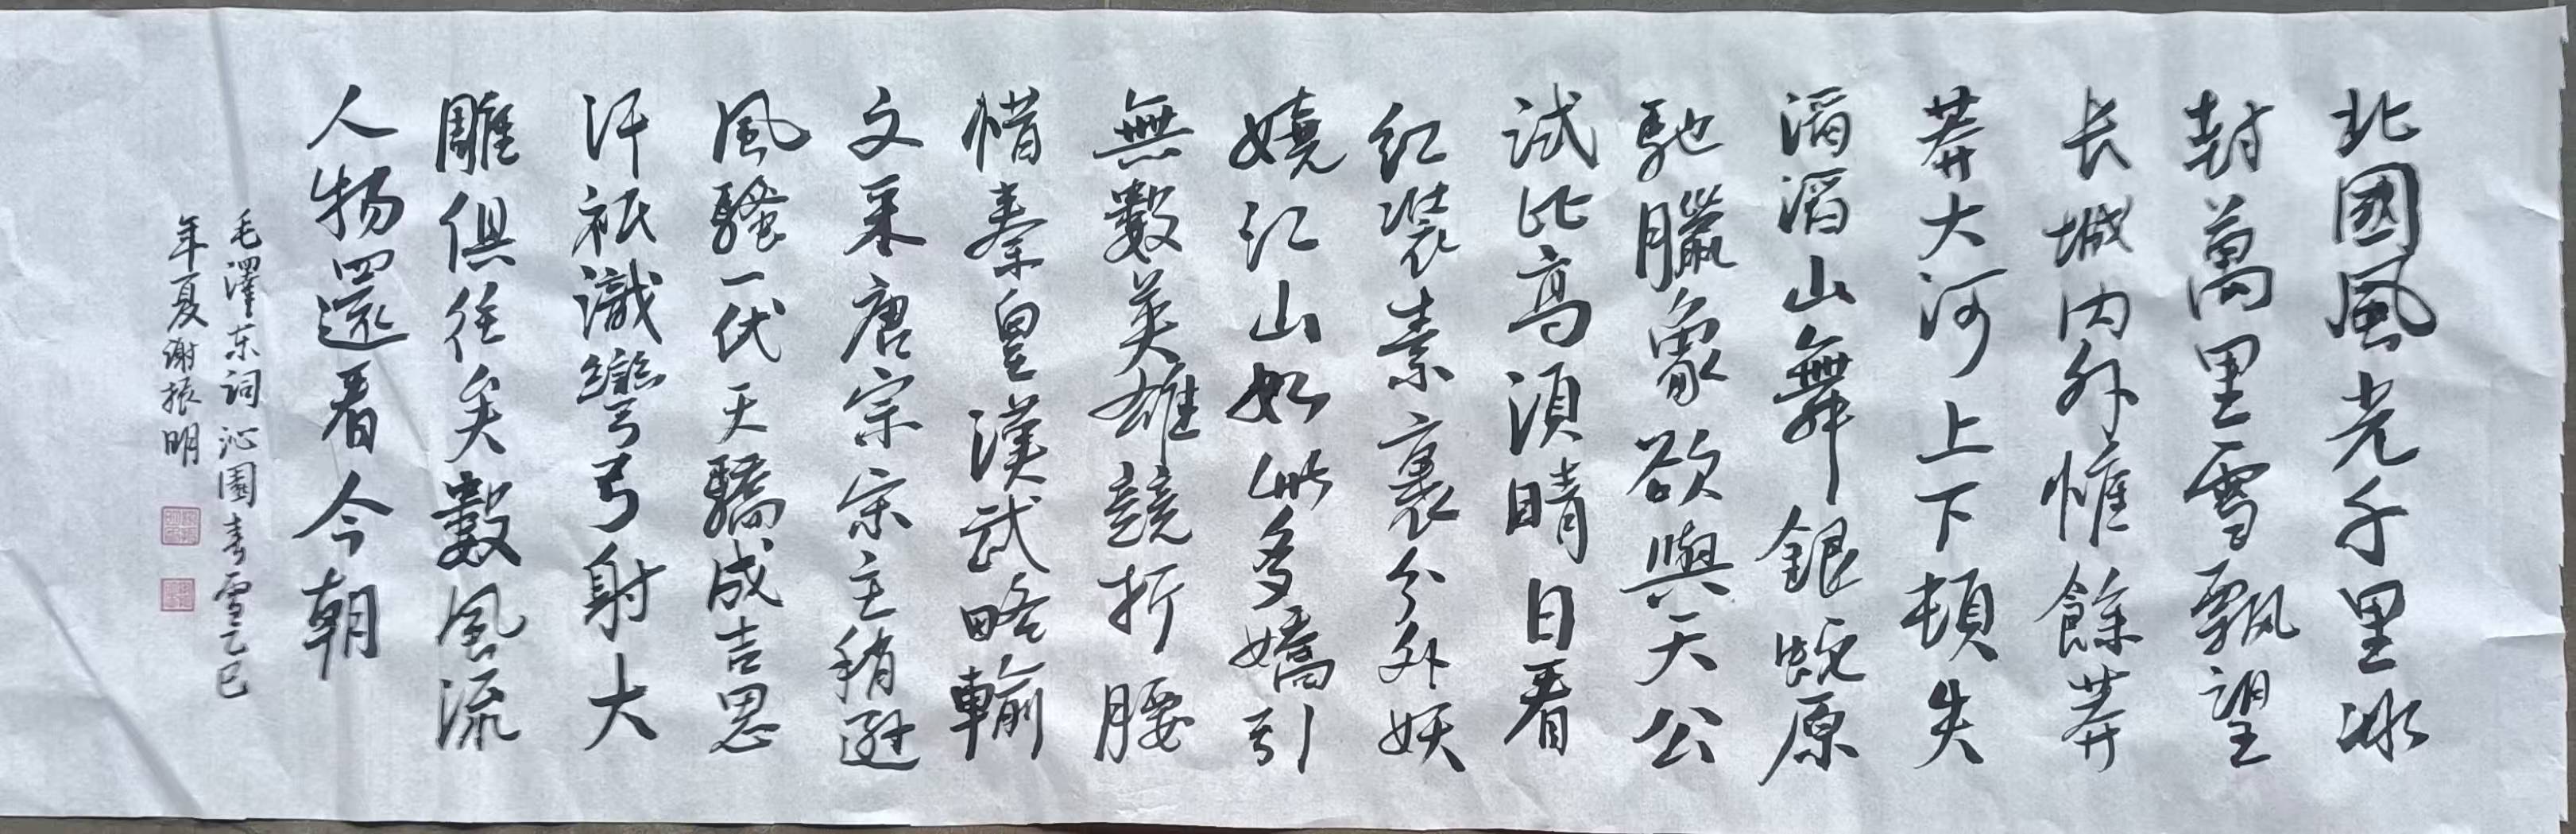 北國風光千里冰
封萬里雪飄望
长城内外惟餘莽
莽大河上下頓失
滔滔山舞銀蛇原
馳臘象欲與天公
試比高須晴日看
红装素裹分外妖
嬈江山如此多嬌引
無數英雄競折腰
惜秦皇漢武略輸
文采唐宗宋主稍遜
風騷一代天驕成吉思
汗祇識彎弓射大
雕俱往矣數風流
人物還看今朝
毛澤东詞沁園春雪乙巳
年夏谢振明